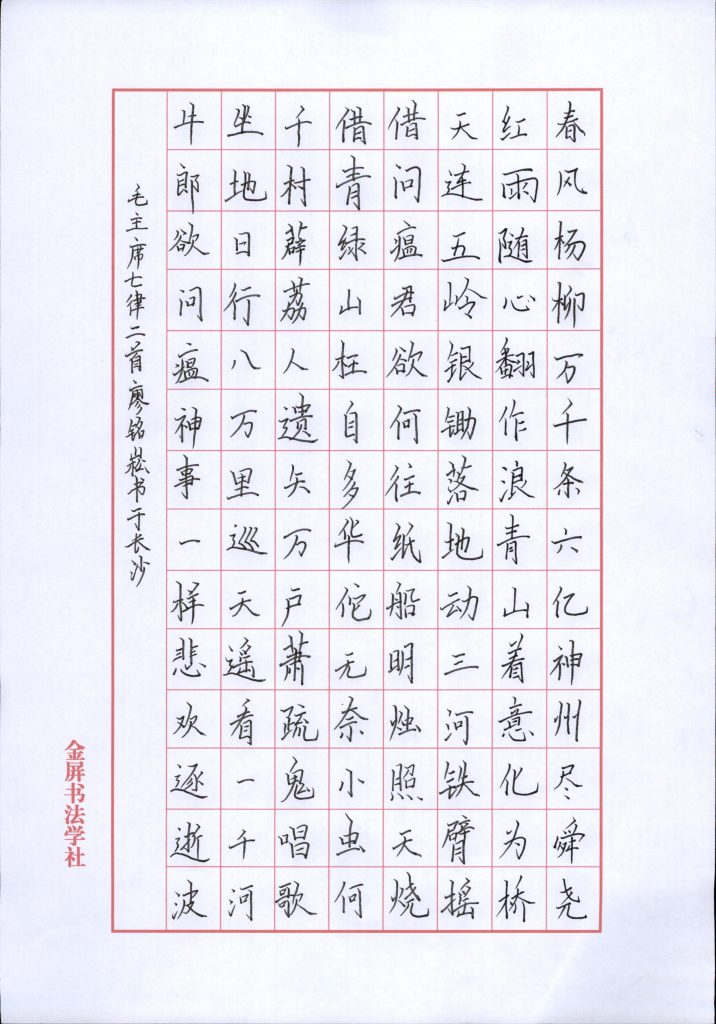 春风杨柳万千条六亿神州尽舜尧
红雨随心翻作浪青山着意化为桥
天连五岭银锄落地动三河铁臂摇
借问瘟君欲何往纸船明烛照天烧
借青绿山枉自多华佗无奈小虫何
千村薜荔人遗矢万户萧疏鬼唱歌
坐地日行八万里巡天遥看一千河
牛郎欲问瘟神事一样悲欢逐逝波
毛主席七律二首廖铭崧书于长沙
金屏书法学社